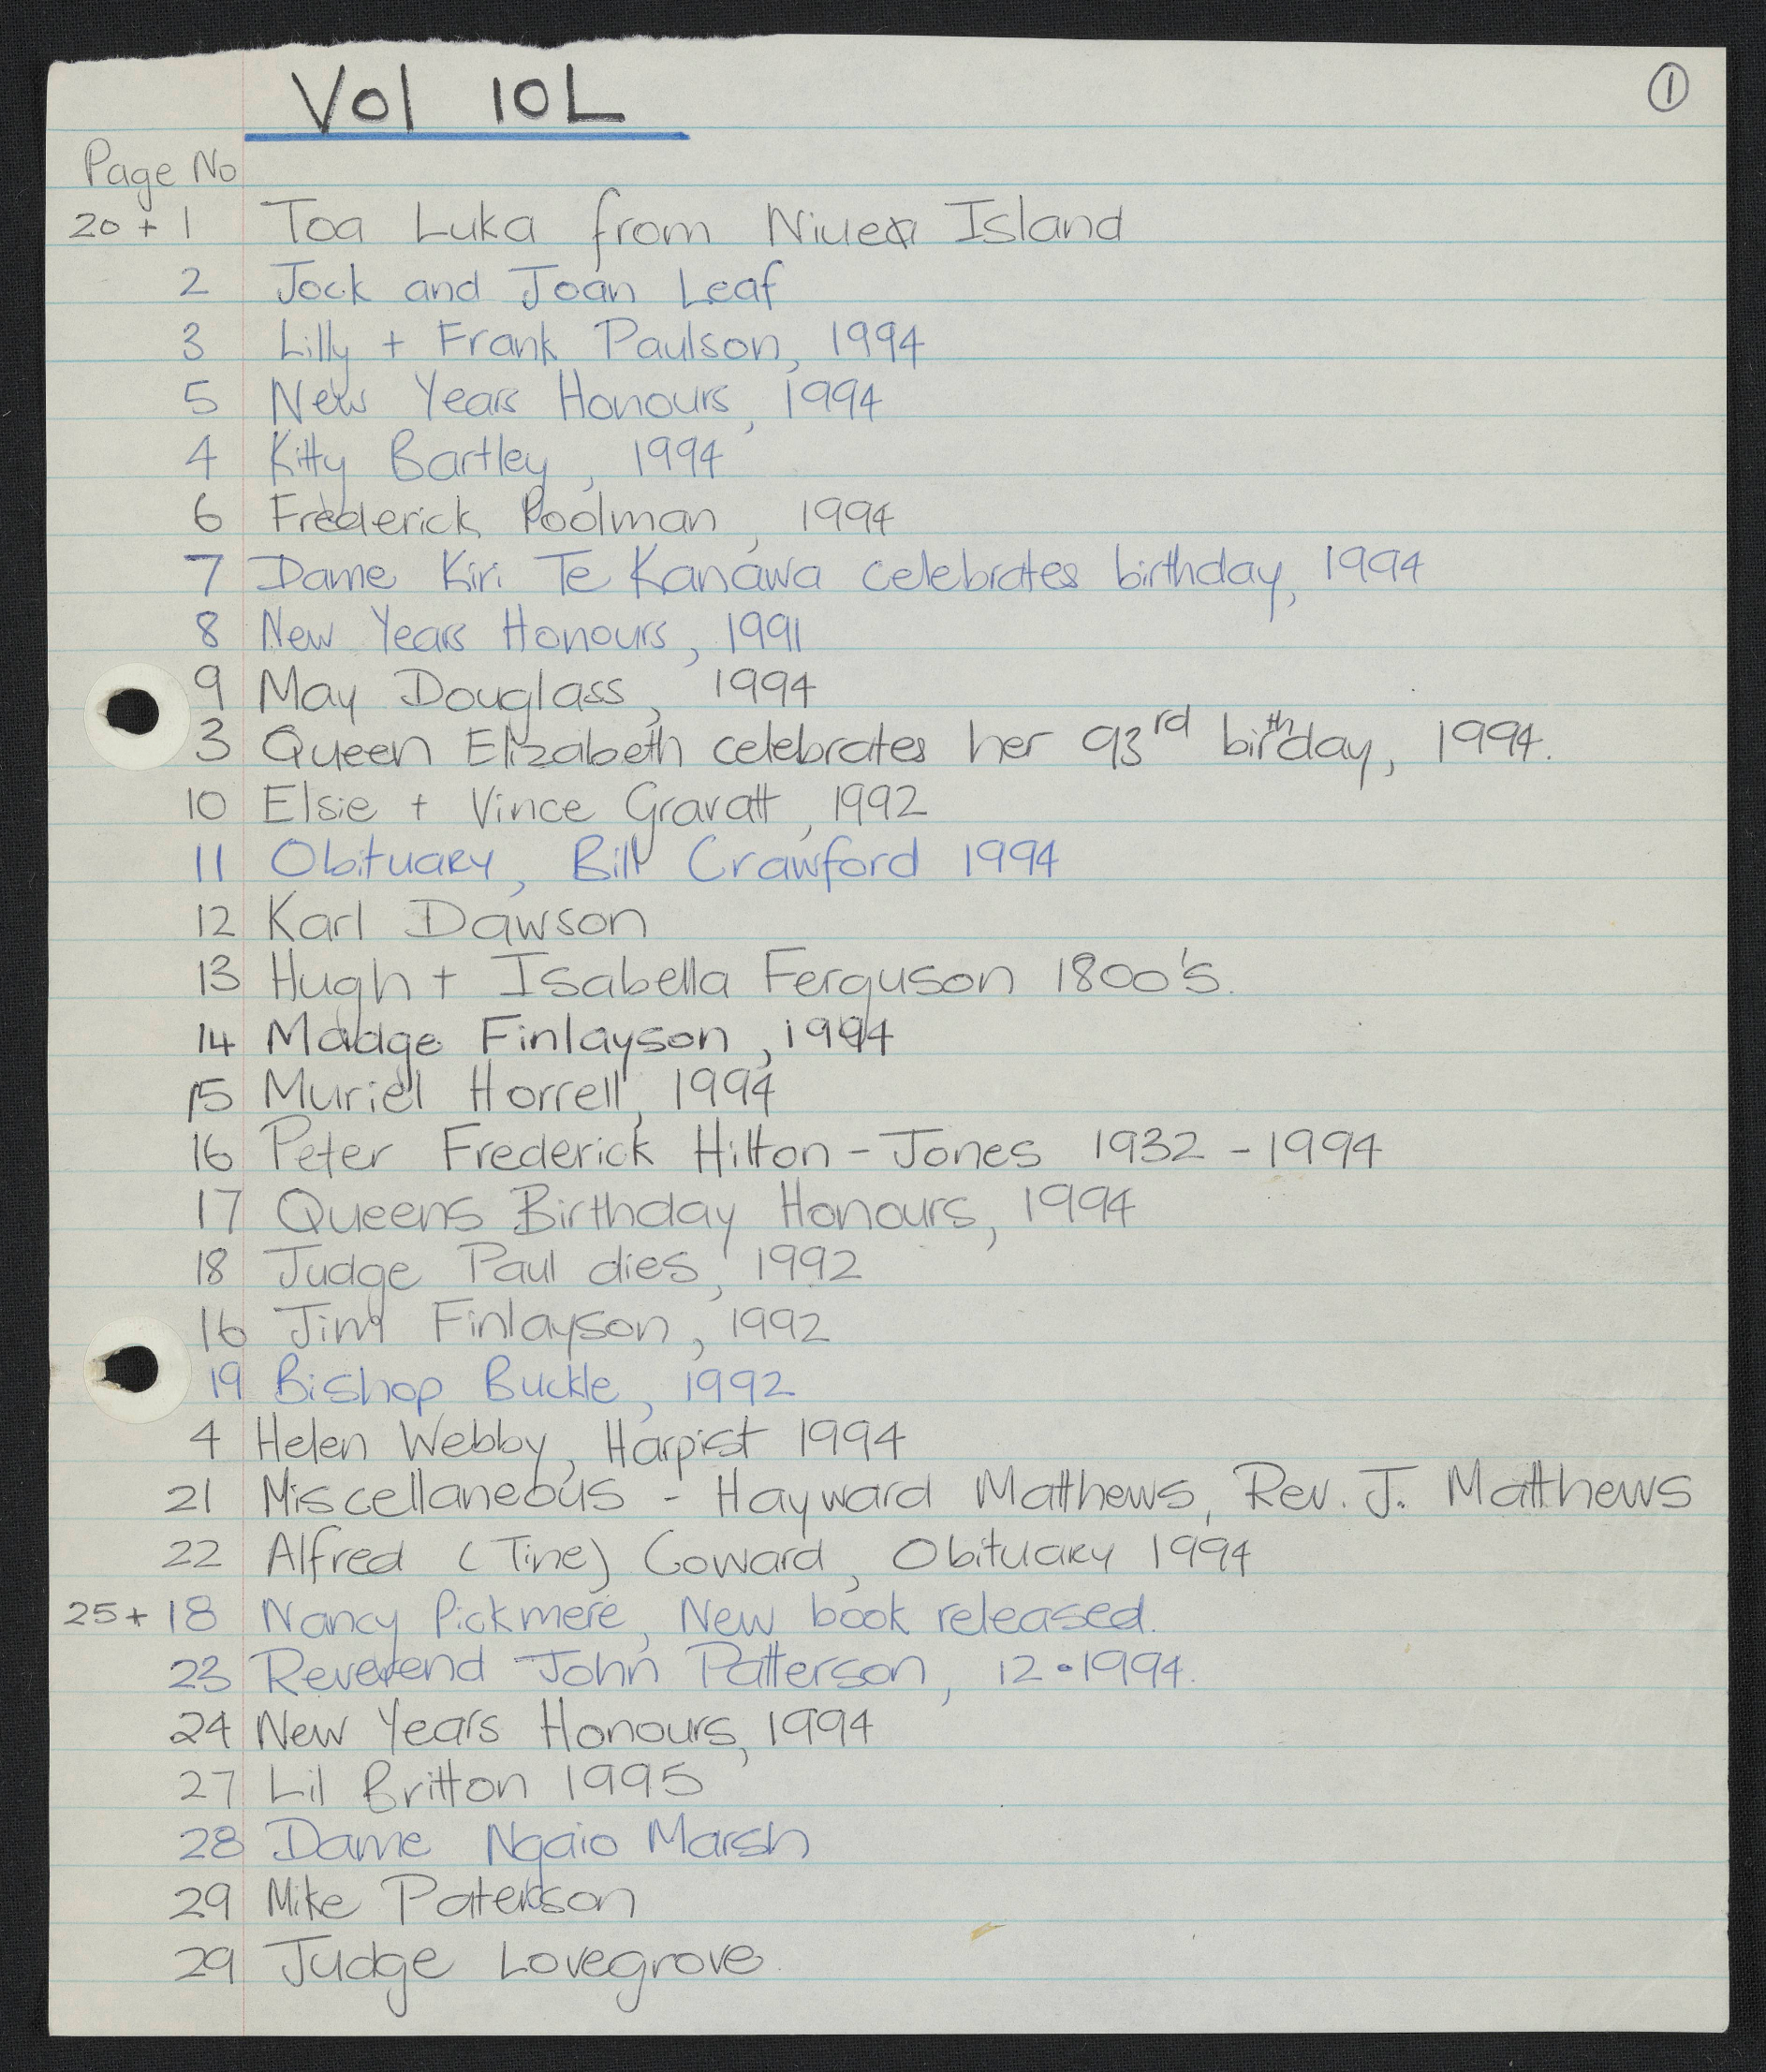 Vol 10L
①
Page No
20 + 1 Toa Luka from Niuea Island
2 Jock and Joan Leaf
3 Lilly + Frank Paulson, 1994
5 New Years Honours, 1994
4 Kitty Bartley, 1994
6 Frederick Poolman, 1994
7 Dame Kiri Te Kanawa celebrates birthday, 1994
8 New Years Honours, 1991
9 May Douglass, 1994
3 Queen Elizabeth celebrates her 93rd birthday, 1994.
10 Elsie + Vince Gravatt, 1992
11 Obituary, Bill Crawford 1994
12 Karl Dawson
13 Hugh + Isabella Ferguson 1800's.
14 Madge Finlayson, 1994
15 Muriel Horrell, 1994
16 Peter Frederick Hilton - Jones 1932 - 1994
17 Queens Birthday Honours, 1994
18 Judge Paul dies, 1992
16 Jim Finlayson, 1992
19 Bishop Buckle, 1992
4 Helen Webby, Harpist 1994
21 Miscellaneous - Hayward Matthews, Rev. J. Matthews
22 Alfred (Tine) Coward, Obituary 1994
25 + 18 Nancy Pickmere, New book released.
23 Reverend John Patterson, 12.1994.
24 New Years Honours, 1994
27 Lil Britton 1995
28 Dame Ngaio Marsh
29 Mike Paterson
29 Judge Lovegrove.